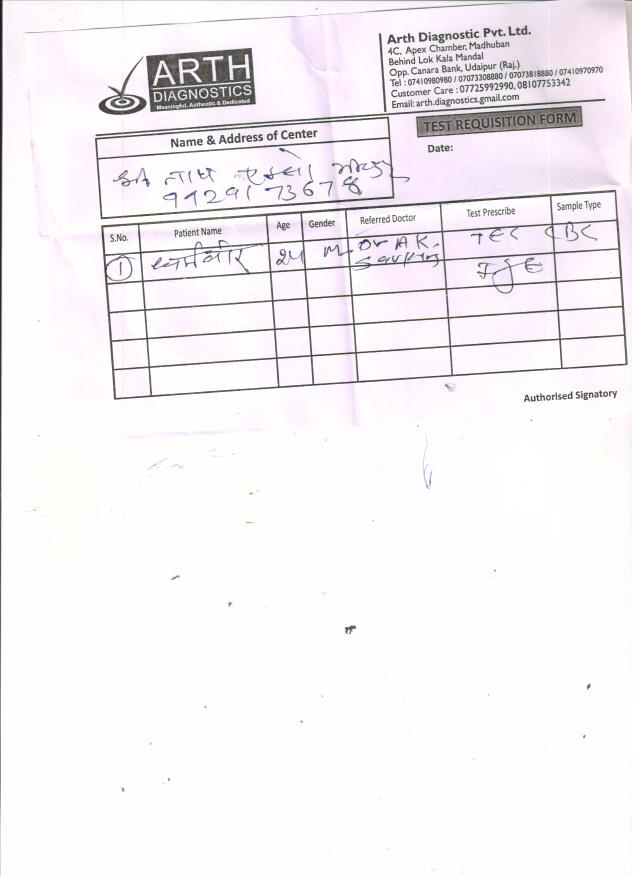 ARTH
DIAGNOSTICS
Meaningful, Authentic & Dedicated
Arth Diagnostic Pvt. Ltd.
4C, Apex Chamber, Madhuban
Behind Lok Kala Mandal
Opp. Canara Bank, Udaipur (Raj.)
Tel : 07410980980 / 07073308880 / 07073818880 / 07410970970
Customer Care : 07725992990, 08107753342
Email: arth.diagnostics.gmail.com
TEST REQUISITION FORM
Date:
Name & Address of Center
नाथ
9929173678
S.No. Patient Name Age Gender Referred Doctor Test Prescribe Sample Type
1 धर्मवीर 24 M Dr A K. TEC CBC
IgE
Authorised Signatory